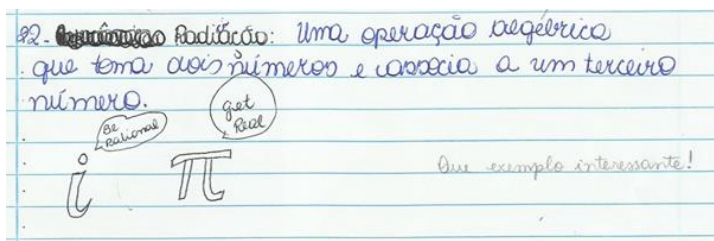 22. Radiação: Uma operação algébrica
que toma dois números e associa a um terceiro
número.
Be Rational
get Real
i π
Que exemplo interessante!